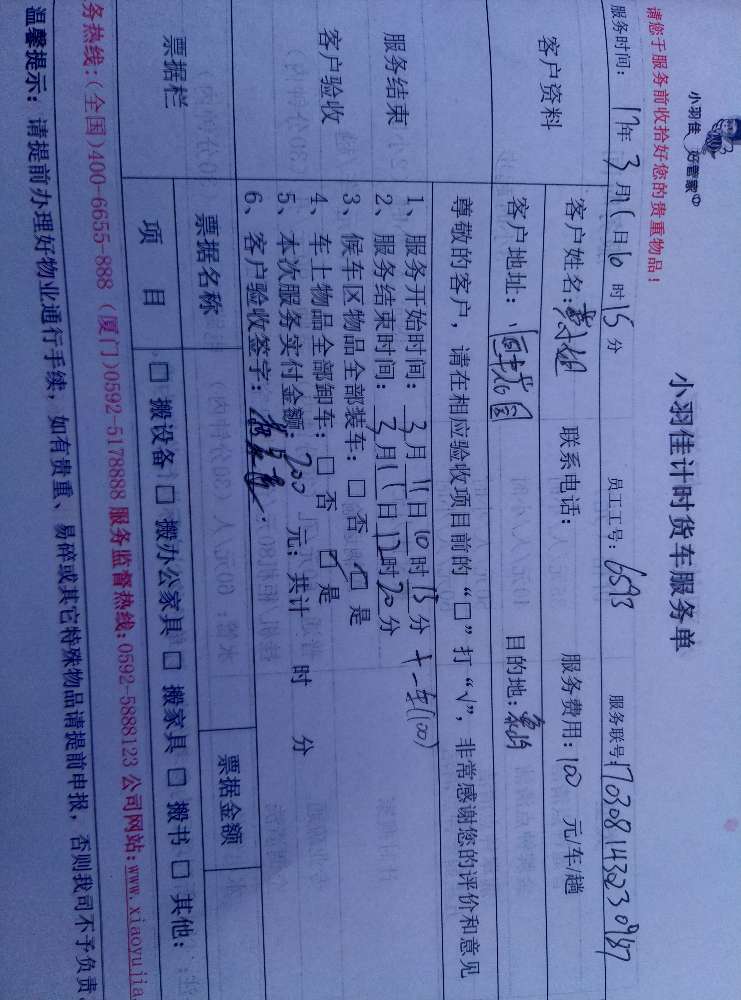 小羽佳 好管家
小羽佳计时货车服务单
请您于服务前收拾好您的贵重物品！
服务时间： 17年 3月11日10时15分 员工工号：6593 服务联号:170308143230987
客户资料
客户姓名: 联系电话： 服务费用：100 元/车/趟
客户地址： 目的地：
尊敬的客户，请在相应验收项目前的“□”打“√”，非常感谢您的评价和意见
服务结束
客户验收
1、服务开始时间：3月11日10时15分 十一车(100)
2、服务结束时间：3月11日12时20分
3、候车区物品全部装车：□ 否 □ 是
4、车上物品全部卸车：□ 否 □ 是
5、本次服务实付金额：200 元；共计 时 分
6、客户验收签字：
票据栏
票据名称 票据金额
项 目 □ 搬设备 □ 搬办公家具 □ 搬家具 □ 搬书 □ 其他：
务热线：(全国)400-6655-888 (厦门)0592-5178888 服务监督热线:0592-5888123 公司网站:www.xiaoyujia.
温馨提示：请提前办理好物业通行手续，如有贵重、易碎或其它特殊物品请提前申报，否则我司不予负责。